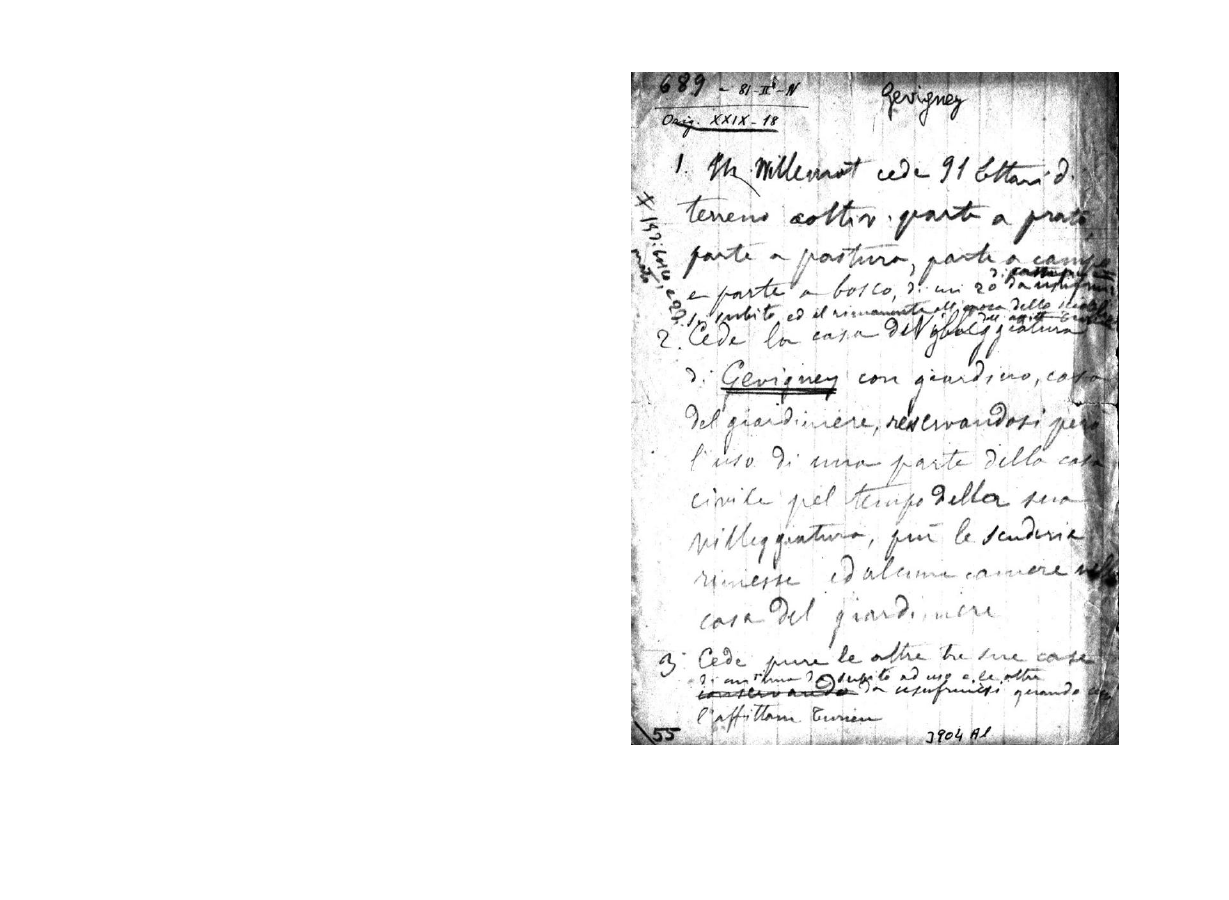 689 - 81-II - N
Gevigney
Orig. XXIX - 18
1. Willemot cede 91 Ettari di
terreno coltiv. parte a prato,
parte a pastura, parte a campo
e parte a bosco, di cui 20
subito ed il rimanente
2. Cede la casa di Villeggiatura
di Gevigney con giardino, casa
del giardiniere, reservandosi però
l'uso di una parte della casa
civile pel tempo della sua
villeggiatura, più le scuderie
rimesse ed alcune camere nella
casa del giardiniere
3. Cede pure le altre tre sue case
di cui una subito ad uso e le altre
conservando da usufruirsi quando
l'affittam
55
3904 A1